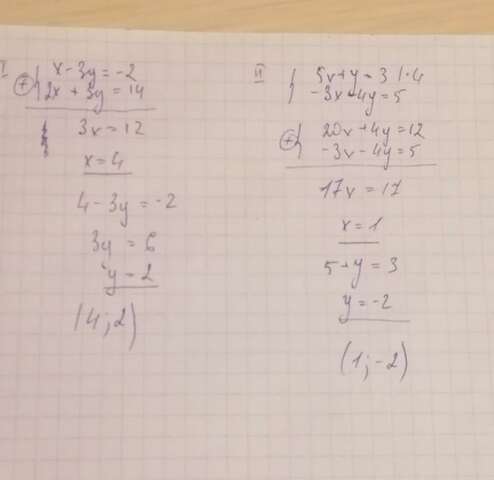 I
x - 3y = -2
2x + 3y = 14
3x = 12
x = 4
4 - 3y = -2
3y = 6
y = 2
(4; 2)
II
5x + y = 3 | · 4
-3x - 4y = 5
20x + 4y = 12
-3x - 4y = 5
17x = 17
x = 1
5 + y = 3
y = -2
(1; -2)